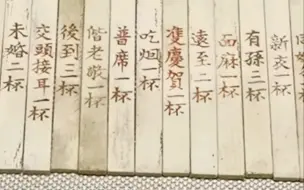 新交一杯
有孫三杯
面麻一杯
遠至二杯
雙慶賀一杯
吃烟一杯
普席一杯
偕老敬一杯
後到三杯
交頭接耳一杯
未婚二杯